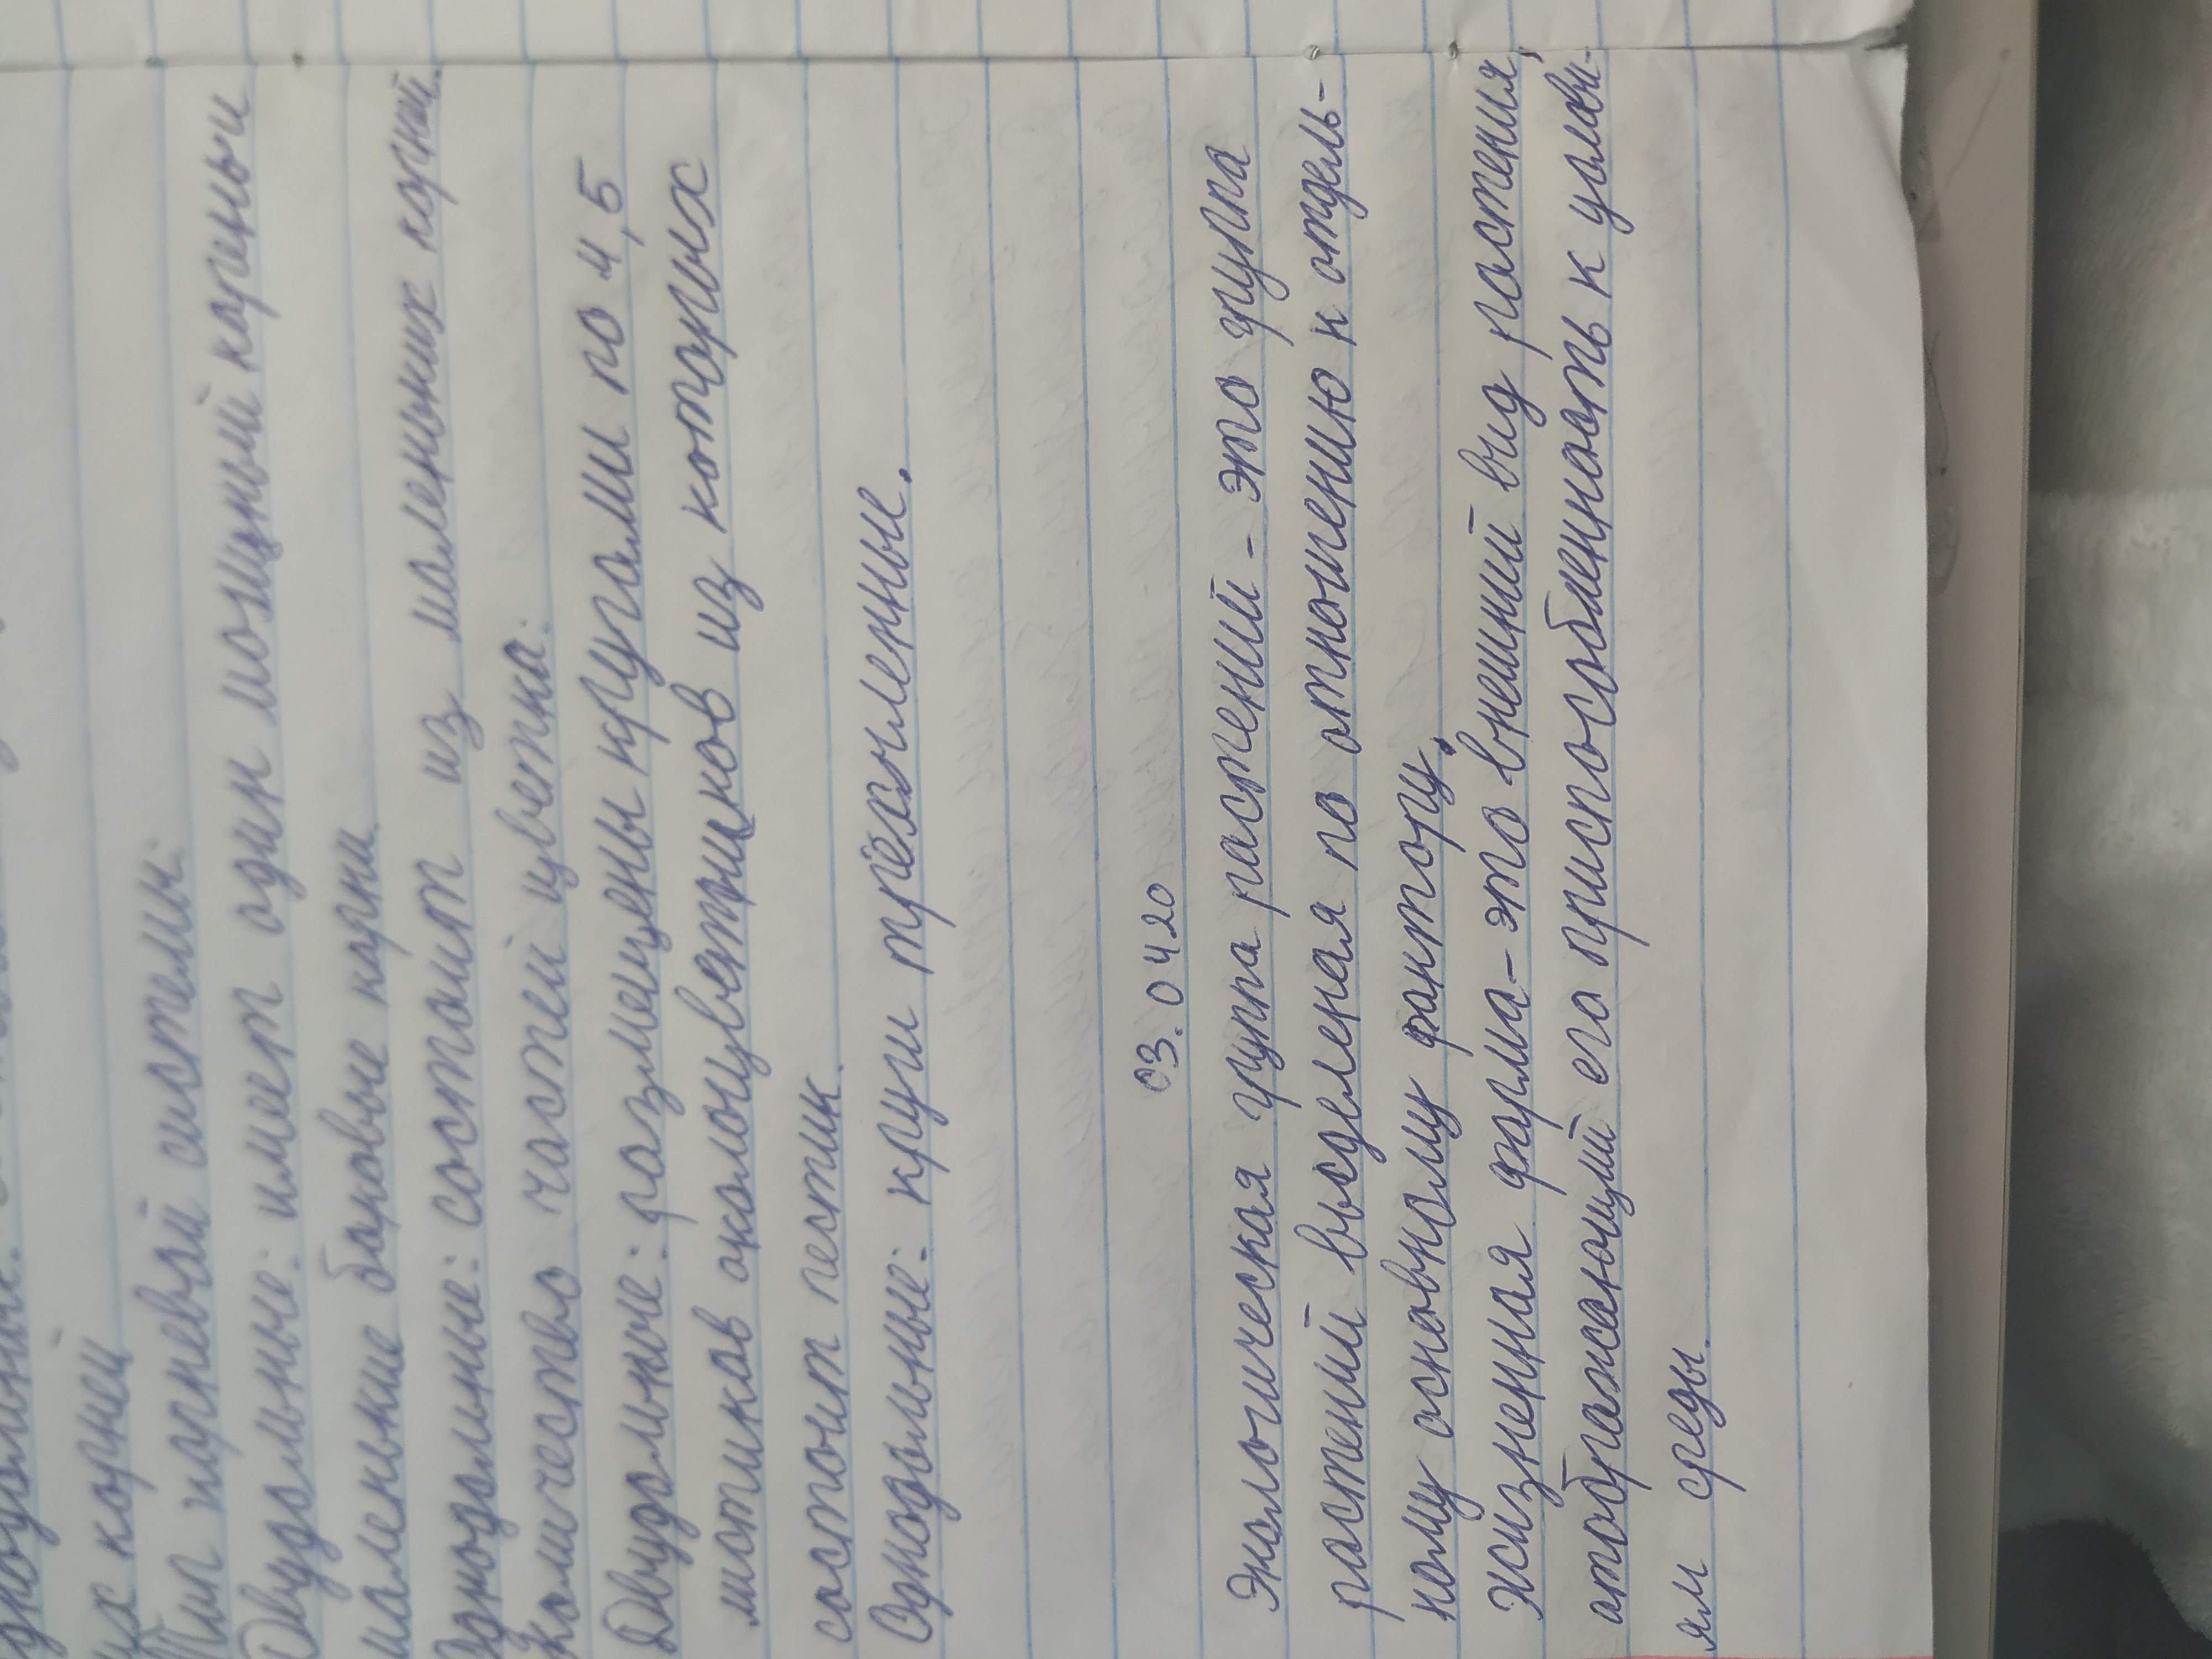 их корней
Тип корневой системы:
Двудольные: имеет один мощный корень и
маленькие боковые корни
Однодольные: состоит из маленьких корней.
Количество частей цветка:
Двудольные: размещены кругами по 4, 5
листиков околоцветников из которых
состоит пестик.
Однодольные: круги трёхчленные.
03.0420
Экологическая группа растений - это группа
растений выделеная по отношению к отдель-
ному основному фактору.
Жизненная форма - это внешний вид растения,
отображающий его приспособленность к услови-
ям среды.